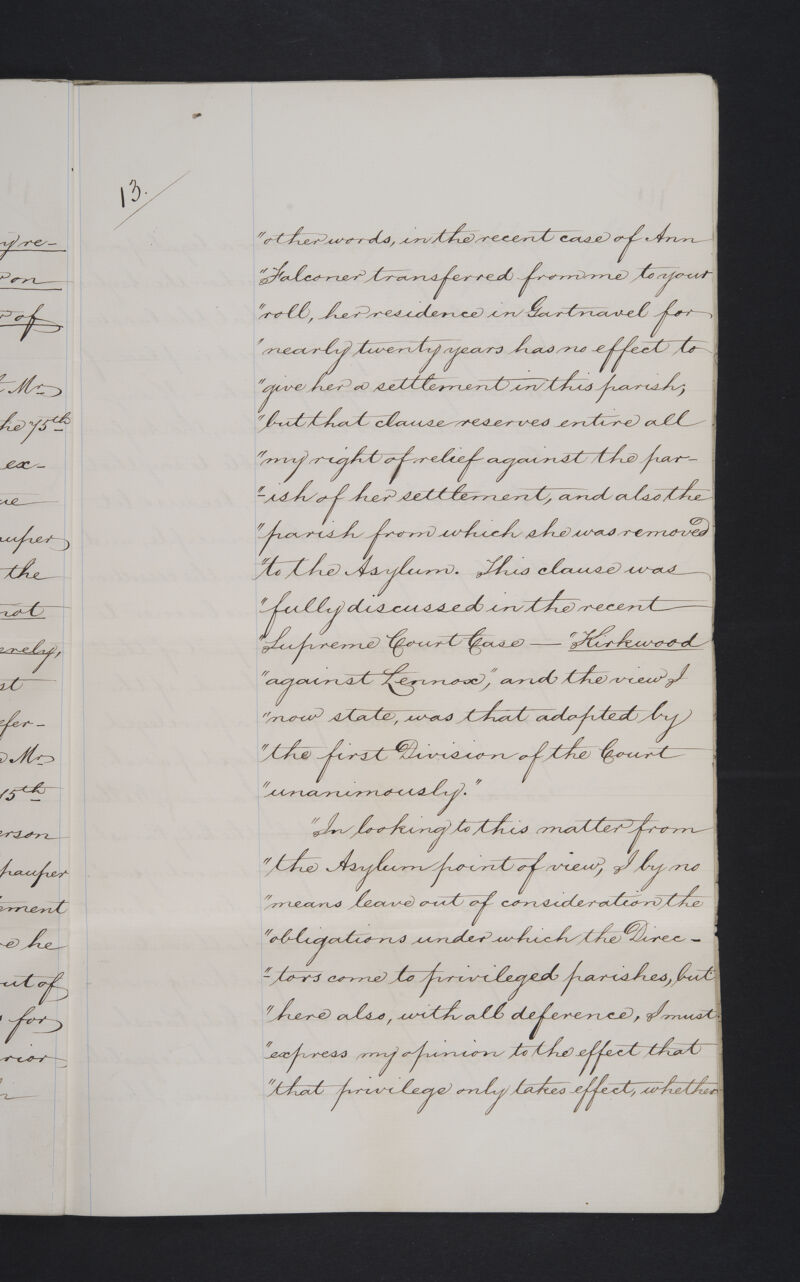 13.
"other words, in the recent case of Ann
"Falconer transferred from me to your
"roll, her residence in Gartnavel for
"nearly twenty years has no effect to
"give her a settlement in this parish,
"but that clause reserves entire all
"my right of relief against the par-
"-ish of her settlement, and also the
"parish from which she was removed
"to the Asylum. This clause was
"fully discussed in the recent
"Supreme Court Case — "Kirkwood
"against Lennox," and the view I
"now state, was that adopted by
"the first Division of the Court
"unanimously."
"In looking to this matter from
"the Asylum point of view, I by no
"means leave out of consideration the
"obligations under which the Direc-
"-tors come to privileged parishes, but
"here also, with all deference, I must
"express my opinion to the effect that
"that privilege only takes effect, whether
y re-
on
of
Mr
he 75th
ex-
ue
auper
the
not
erely,
st
efer-
Mr
15th
erson
pauper
ement
e he
ut of
for
rior